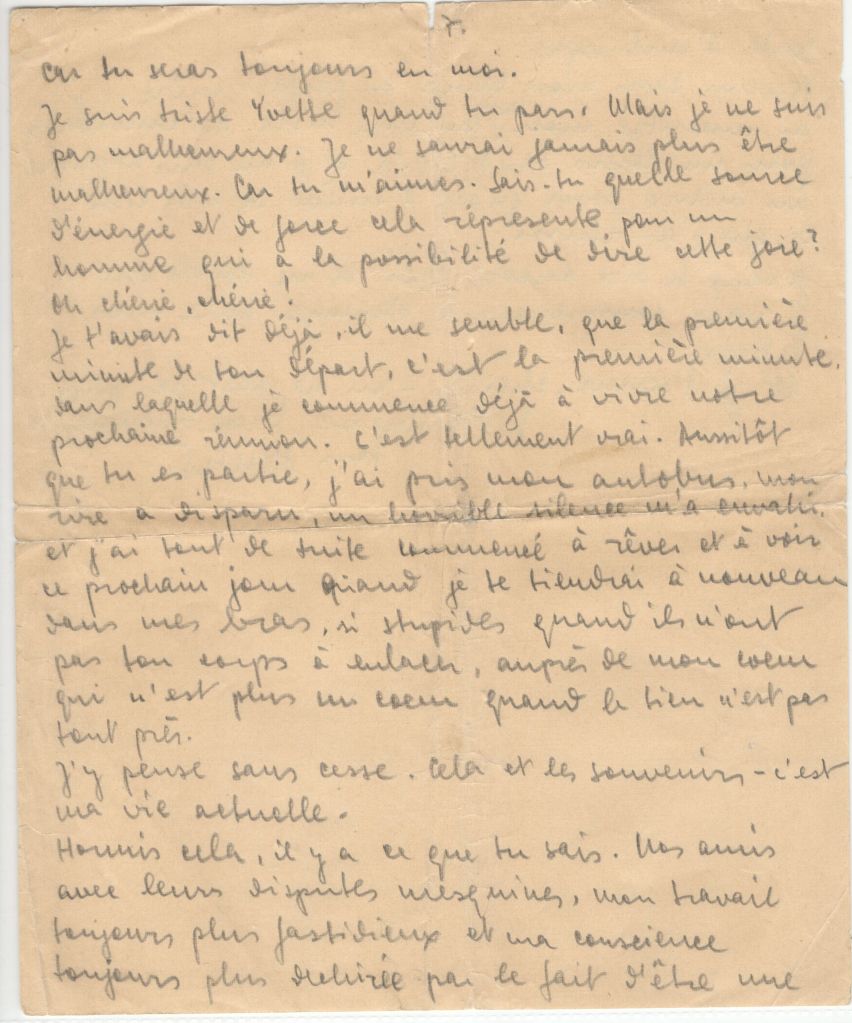 7.
car tu seras toujours en moi.
Je suis triste Yvette quand tu pars. Mais je ne suis
pas malheureux. Je ne saurai jamais plus être
malheureux. Car tu m'aimes. Sais-tu quelle source
d'énergie et de force cela réprésente pour un
homme qui a la possibilité de dire cette joie?
Oh chérie, chérie!
Je t'avais dit déjà, il me semble, que la première
minute de ton départ, c'est la première minute,
dans laquelle je commence déjà à vivre notre
prochaine réunion. C'est tellement vrai. Aussitôt
que tu es partie, j'ai pris mon autobus, mon
rire a disparu, un horrible silence m'a envahi.
et j'ai tout de suite commencé à rêver et à voir
ce prochain jour quand je te tiendrai à nouveau
dans mes bras, si stupides quand ils n'ont
pas ton corps à enlacer, auprès de mon coeur
qui n'est plus un coeur quand le tien n'est pas
tout près.
J'y pense sans cesse. Cela et les souvenirs - c'est
ma vie actuelle.
Hormis cela, il y a ce que tu sais. Nos amis
avec leurs disputes mesquines, mon travail
toujours plus fastidieux et ma conscience
toujours plus dechirée par le fait d'être une